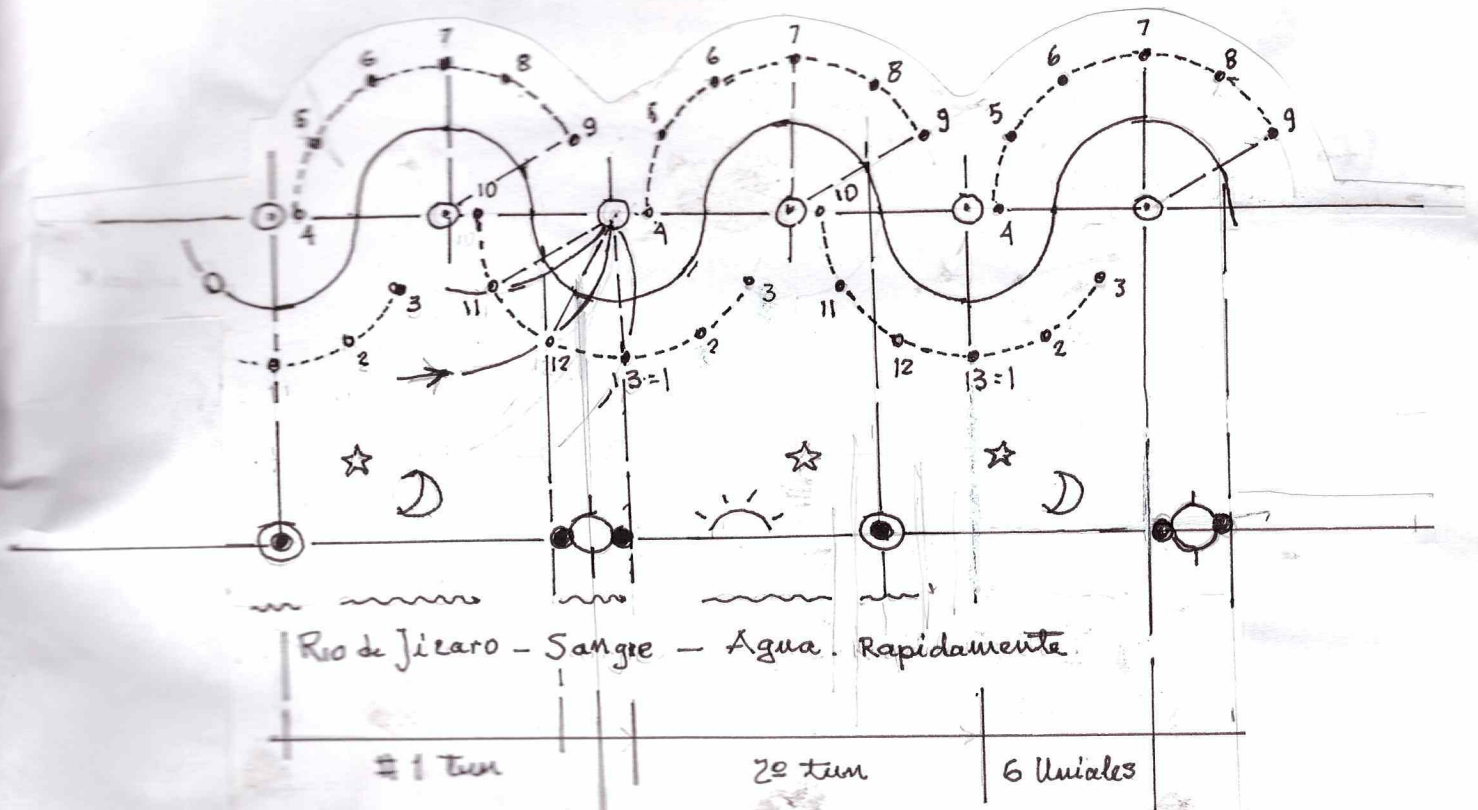 7 7 7
6 8 6 8 6 8
5 9 5 9 5 9
10 10
4 4 4
3 3 3
11 11
2 12 2 12 2
1 13=1 13=1
Rio de Jicaro - Sangre - Agua. Rapidamente.
# 1 tun 2º tun 6 Uniales